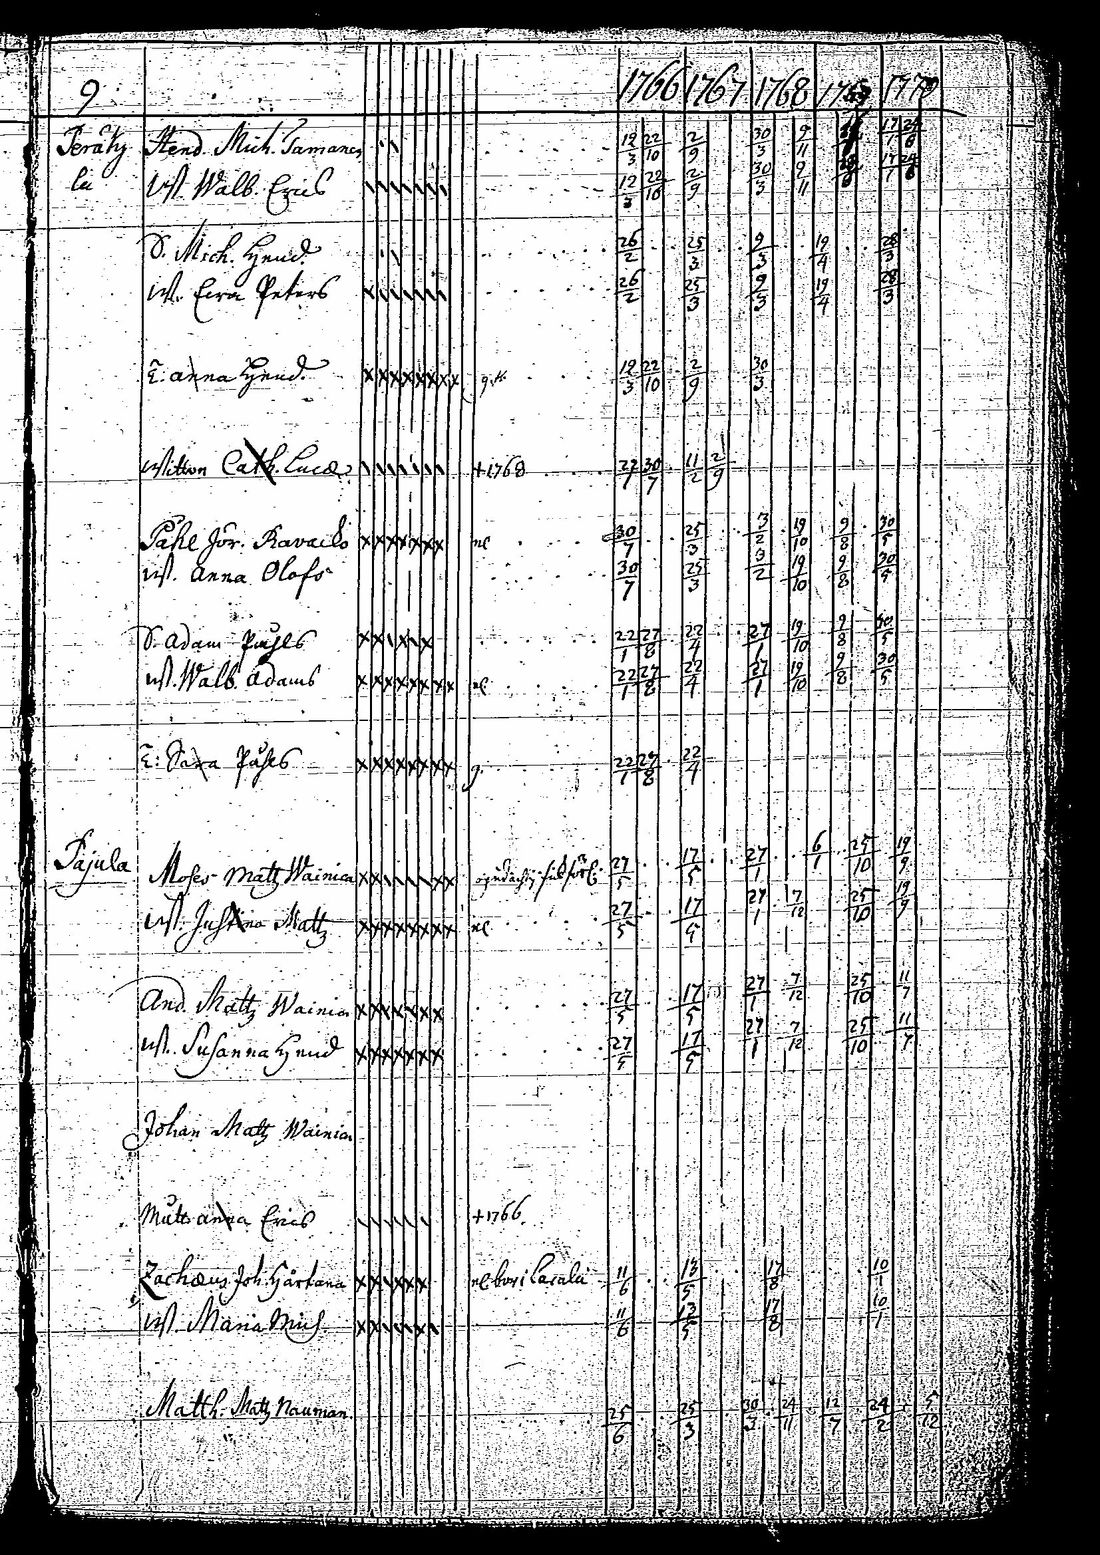 9 1766 1767 1768 1770
Peräky Hend. Mich. Tamanen 12/3 22/10 2/9 30/3 9/11 17/1
la ust. Walb. Erics 12/3 22/10 2/9 30/3 9/11 17/1
S. Mich. Hend. 26/2 25/3 9/3 19/4 28/3
ust. Eva Peters 26/2 25/3 9/3 19/4 28/3
anna Hend. 12/3 22/10 2/9 30/3
Cath. Lucæ +1768 27/1 30/7 11/2 2/9
Påhl Jör. 30/7 25/3 3/2 19/10 9/8 30/5
ust. Anna Olofs 30/7 25/3 3/2 19/10 9/8 30/5
S. Adam Påhls 22/1 27/8 22/4 27/1 19/10 9/8 30/5
ust. Walb. Adams 22/1 27/8 22/4 27/1 19/10 9/8 30/5
Sara Påhls g. 22/1 27/8 22/4
Pajula Moses Matz Wainica 27/5 17/5 27/1 6/1 25/10 19/9
ust. Justina Matz 27/5 17/5 27/1 7/12 25/10 19/9
And. Matz Wainica 27/5 17/5 27/1 7/12 25/10 11/7
ust. Susanna Hend 27/5 17/5 27/1 7/12 25/10 11/7
Johan Matz Wainica
anna Erics +1766.
Zachæus Joh. 11/6 13/5 17/8 10/1
ust. Maria Mich. 11/6 13/5 17/8 10/1
Matth. Matz Nauman. 25/6 25/3 30/3 24/11 12/7 24/2 5/12